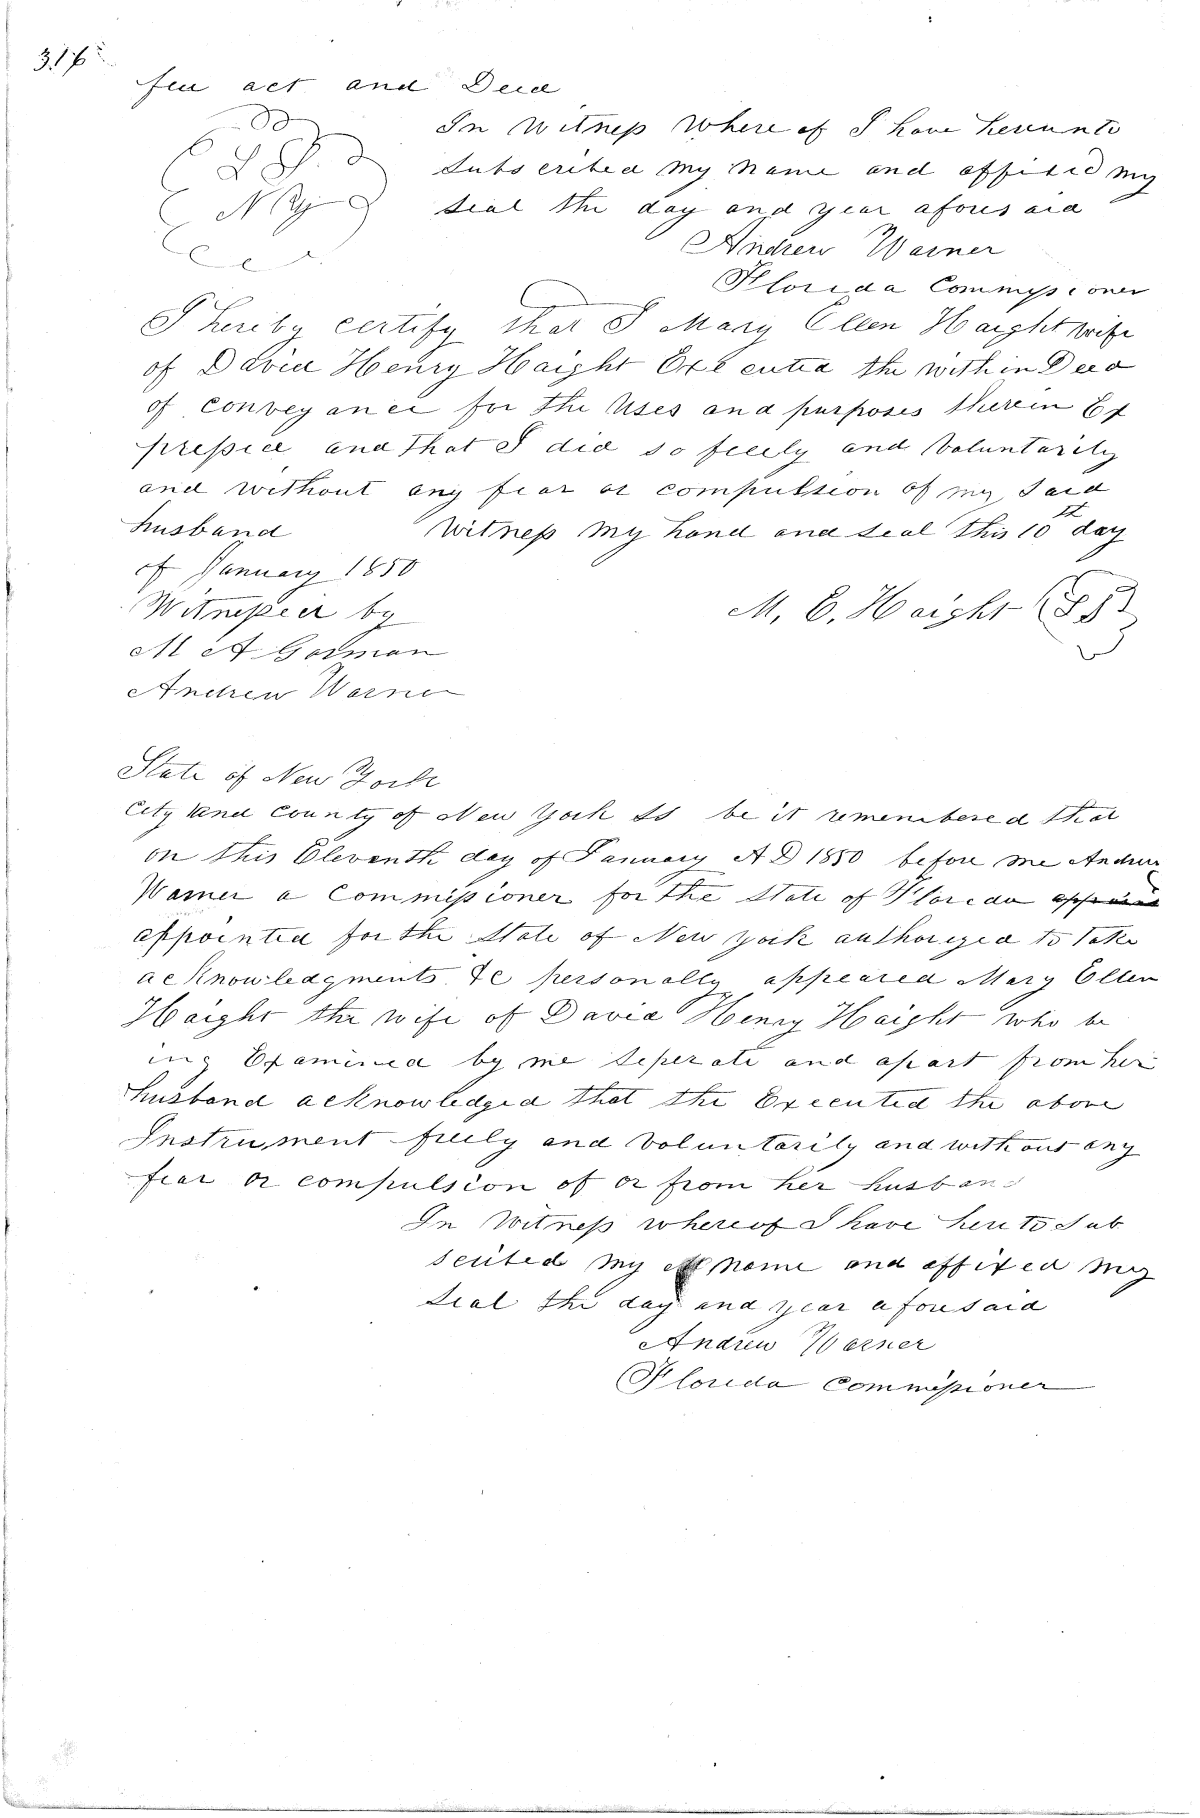 316
free act and Deed
In Witness Where of I have hereunto
Subscribed my name and affixed my
seal the day and year aforesaid
N Y
Andrew Warner
Florida Commissioner
I hereby certify that I Mary Ellen Haight wife
of David Henry Haight Executed the within Deed
of conveyance for the Uses and purposes therein Ex
pressed and that I did so freely and Voluntarily
and without any fear or compulsion of my said
husband Witness my hand and seal this 10th day
of January 1850
Witnessed by
M. E. Haight
M A Gorman
Andrew Warner
State of New York
City and County of New York SS be it remembered that
on this Eleventh day of January A D 1850 before me Andrew
Warner a Commissioner for the State of Florida
appointed for the State of New York authorized to take
acknowledgments &c personally appeared Mary Ellen
Haight the wife of David Henry Haight who be
ing Examined by me Seperate and apart from her
husband acknowledged that the Executed the above
Instrument freely and Voluntarily and without any
fear or compulsion of or from her husband
In Witness whereof I have hereto Sub
scribed my name and affixed my
Seal the day and year aforesaid
Andrew Warner
Florida Commissioner